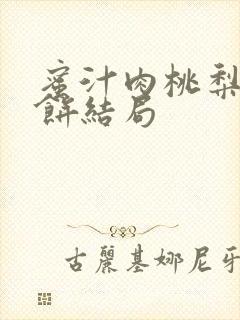 蜜汁肉桃梨
餅結局
古麗基娜尼牙